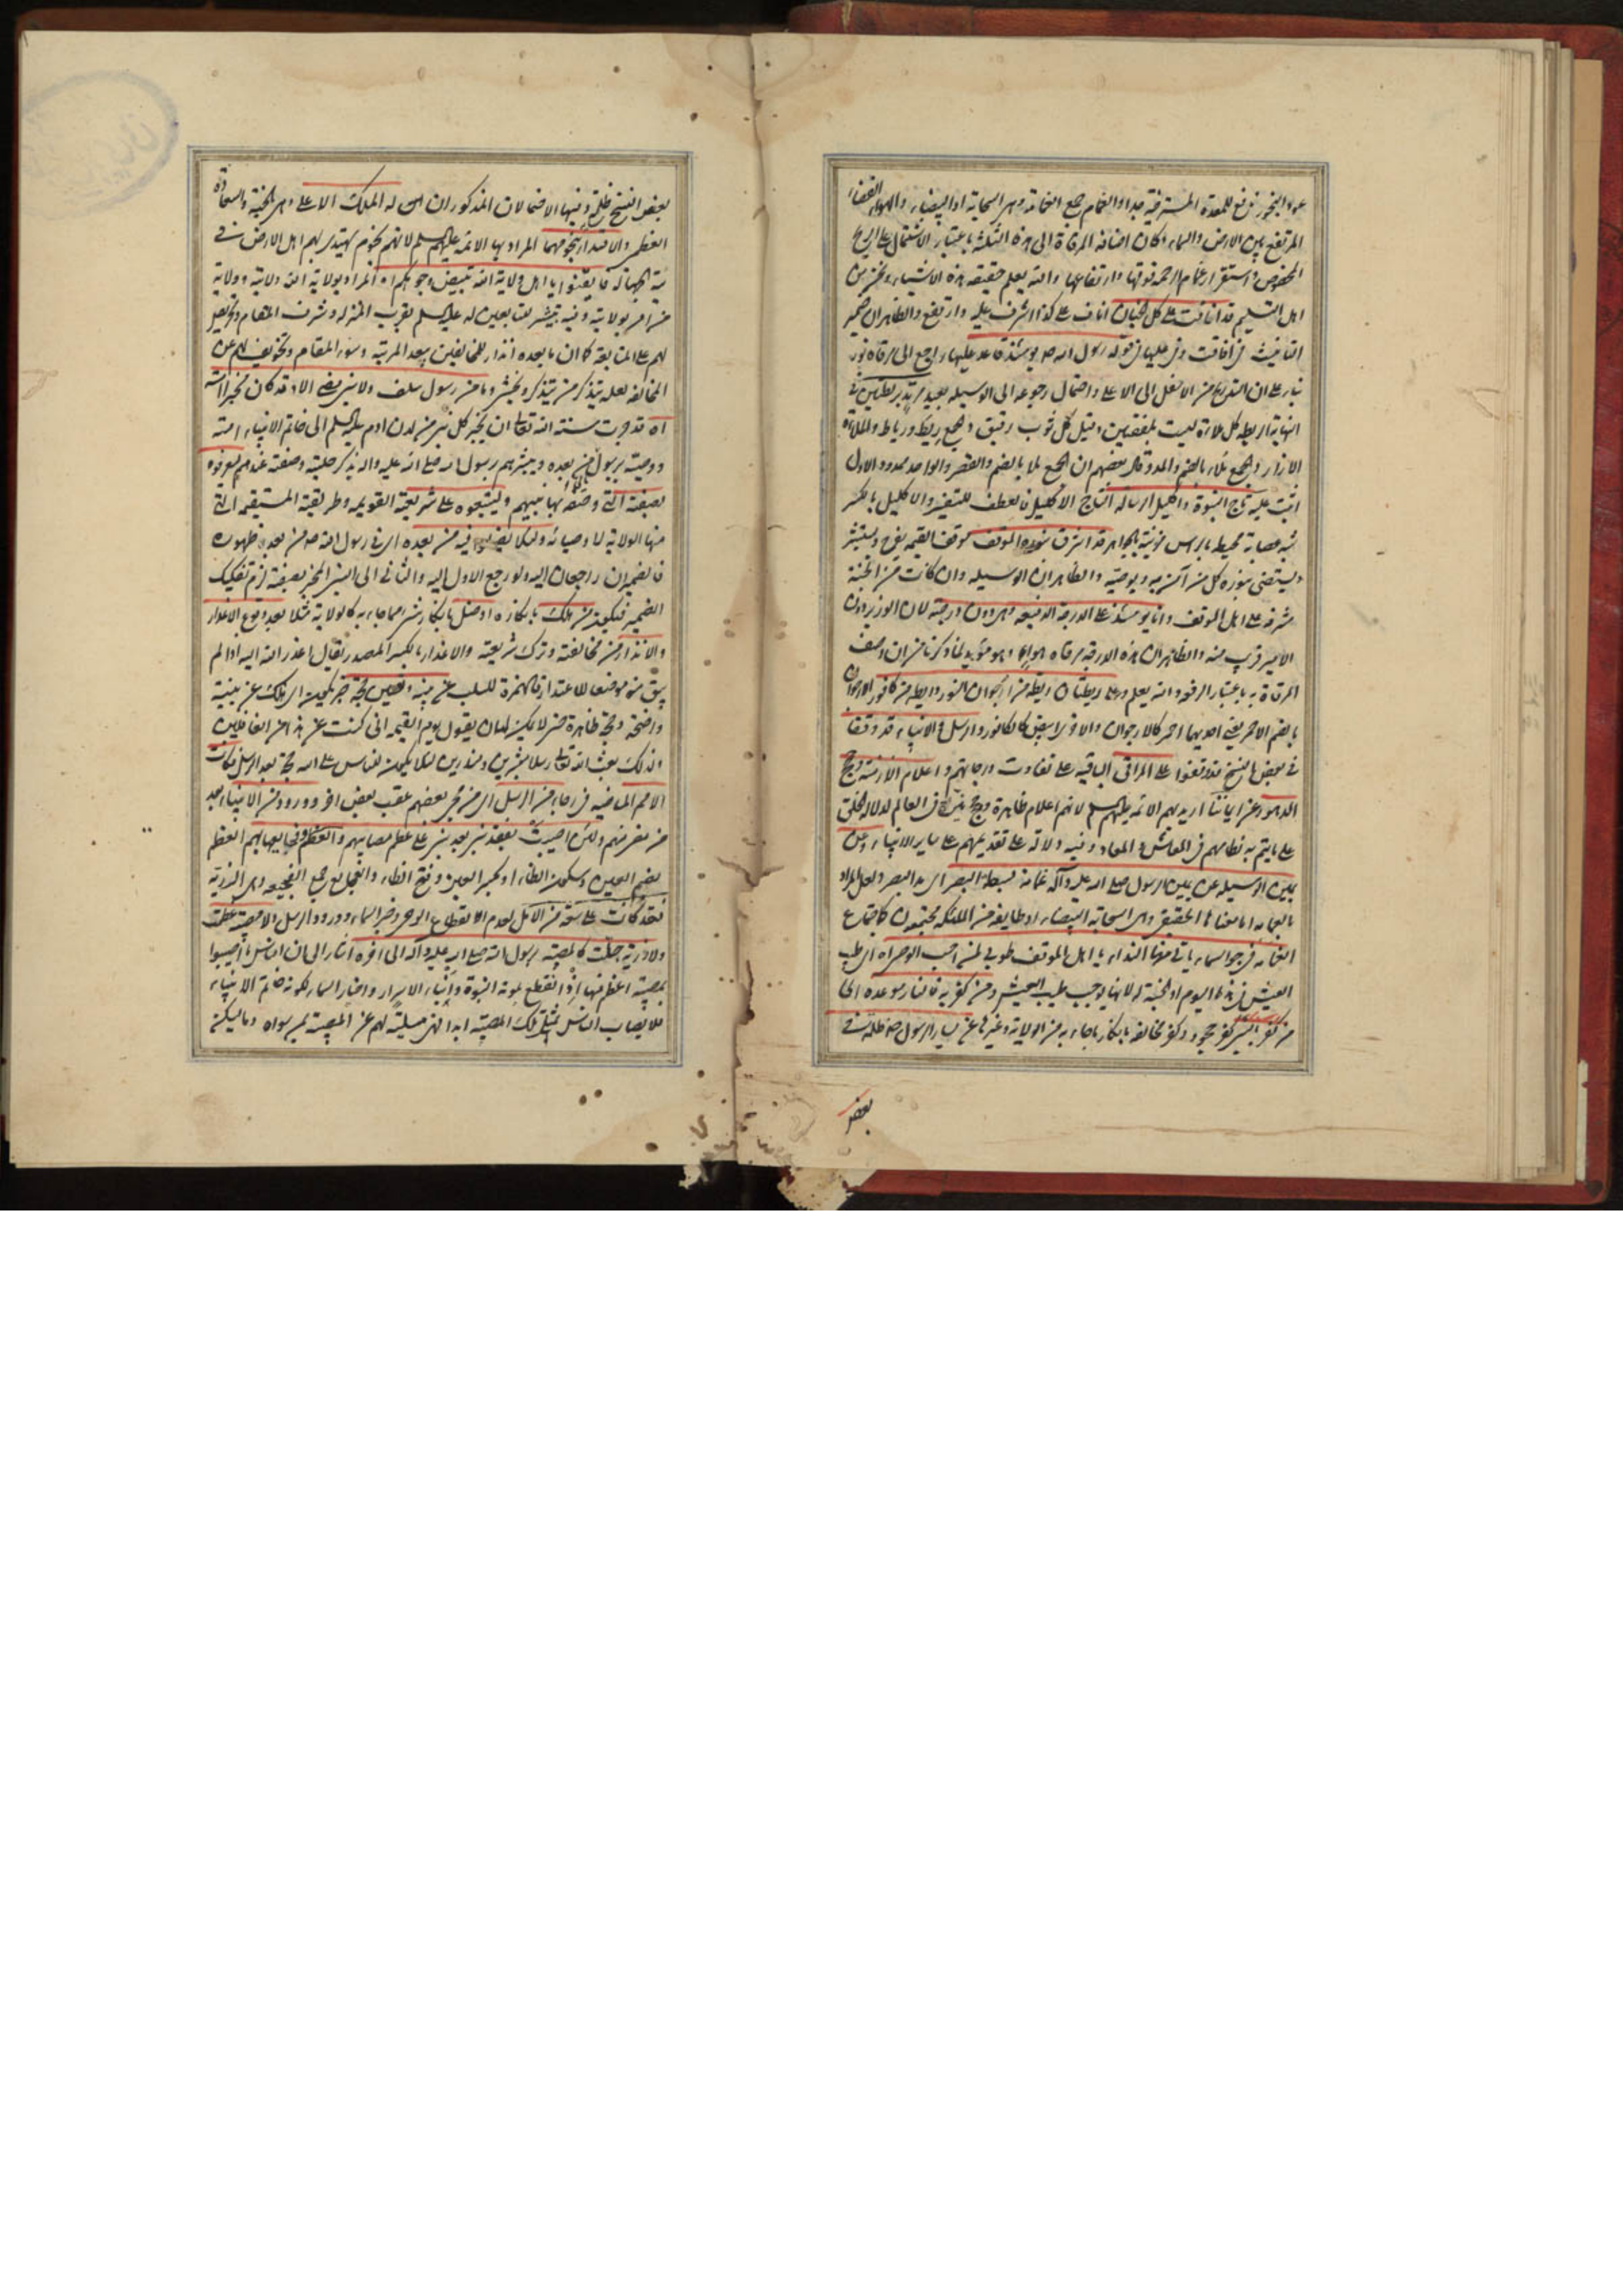 المرتفع بين الارض والسماء وكان اضافة المرقاة الى هذه الثلثة باعتبار الاشتمال على الريح
المخصوص واستقرار غمام الرحمة فوقها وارتفاعها والله يعلم حقيقة هذه الاشياء ونحن من
اهل التسليم قد انافت على كل الجنان اناف على كذا اشرف عليه وارتفع والظاهر ان ضمير
التانيث في انافت وفي عليها في قوله رسول الله ص يومئذ قاعد عليها راجع الى مرقاة نور
بناء على ان التدريج من الاسفل الى الاعلى واحتمال رجوعه الى الوسيلة بعيد مرتد بريطتين في
النهاية الريطة كل ملاءة ليست بلفقتين وقيل كل ثوب رقيق والجمع ريط ورياط والملاءة
الازار والجمع ملاء بالضم والمد وقال بعضهم ان الجمع ملا بالضم والقصر والواحد ممدود والاول
اثبت عليه تاج النبوة واكليل الرسالة التاج الاكليل فالعطف للتفسير والاكليل بالكسر
شبه عصابة محيط بالراس مزينة بالجواهر قد اشرق بنوره الموقف موقف القيمة يفرح ويستبشر
ويستضيء بنوره كل من آمن به وبوصيه والظاهر ان الوسيلة وان كانت من الجنة
مشرفة على اهل الموقف وانا يومئذ على الدرجة الرفيعة وهي دون درجته لان الوزير دون
الامير قريب منه والظاهر ان هذه الدرجة مرقاة هواء وهو مؤيد لما ذكرنا من ان وصف
المرقاة به باعتبار الرفعة والله يعلم وعلى ريطتان ريطة من ارجوان النور وريطة من كافور الارجوان
بالضم الاحمر يعني احديهما احمر كالارجوان والاخرى ابيض كالكافور والرسل والانبياء قد وقفا
في بعض النسخ قد وقفوا على المراقي الباقية على تفاوت درجاتهم واعلام الازمنة وحجج
الدهور عن ايماننا اريد بهم الائمة عليهم السلم لانهم اعلام ظاهرة وحجج في العالم لدلالة الخلق
على ما يتم به نظامهم في المعاش والمعاد وفيه دلالة على تقديمهم على ساير الانبياء وعن
يمين الوسيلة عن يمين الرسول صلى الله عليه وآله غمامة بسطة البصر اي مد البصر ولعل المراد
بالغمامة اما معناها الحقيقي وهي السحابة البيضاء او طايفة من الملئكة مجتمعون كاجتماع
الغمامة في جو السماء ياتي منها النداء يا اهل الموقف طوبى لمن احب الوصي اه اي طيب
العيش في هذا اليوم او الجنة له لانها يوجب طيب العيش ومن كفر به فالنار موعده الخ
من كفر كفر جحود وكفر مخالفة بانكار ما جاء به من الولاية وغيرها عن يسار الرسول ص ظلة في
بعض
بعض النسخ ظلمة وفيها الاحتمالان المذكوران اي له الملك الاعلى وهي الجنة والسعادة
العظمى والاقتداء بنجومهما المراد بها الائمة عليهم السلم لانهم نجوم يهتدي بهم اهل الارض في
شدة الجهالة فايقنوا يا اهل ولاية الله تبييض وجوهكم اه المراد بولاية الله ولايته وولاية
من امر بولايته وفيه تبشير للتابعين له عليه السلم بقرب المنزلة وشرف المقام وتحريص
لهم على المتابعة كما ان ما بعده انذار للمخالفين ببعد المرتبة وسوء المقام وتخويف لهم عن
المخالفة لعله يتذكر من يتذكر ويخشى وما من رسول سلف ولا نبي مضى الا وقد كان مخبرا امته
اه قد جرت سنة الله تعالى ان يخبر كل نبي من لدن ادم عليه السلم الى خاتم الانبياء امته
ووصيته برسول من بعده ويبشرهم برسول الله صلى الله عليه واله بذكر حليته وصفته عندهم ليعرفوه
بصفته التي وصفه بها نبيهم وليتبعوه على شريعته القويمة وطريقته المستقيمة التي
منها الولاية لاوصيائه ولئلا يضلوا فيه من بعده اي في رسول الله ص من بعد ظهوره
فالضميران راجعان اليه ولو رجع الاول اليه والثاني الى البشير المخبر بصفته لزم تفكيك
الضمير فيكون من هلك بانكاره او ضل بانكار شيء مما جاء به كالولاية مثلا بعد وقوع الاعذار
والانذار من مخالفته وترك شريعته والاعذار بالكسر المصدر يقال اعذر الله اليه اذا لم
يبق منه موضعا للاعتذار فالهمزة للسلب عن بينة وتعيين حجة خبر يكون اي هلك عن بينة
واضحة وحجة ظاهرة حتى لا يمكن لهما ان يقول يوم القيمة اني كنت عن هذا من الغافلين
ولذلك بعث الله تعالى رسلا مبشرين ومنذرين لئلا يكون للناس على الله حجة بعد الرسل فكانت
الامم الماضية في رجاء من الرسل اي من مجيء بعضهم عقب بعض اخر وورود من الانبياء بعد
من مضى منهم ولئن اصيبت بفقد نبي بعد نبي على عظم مصائبهم والعظم وفجايعها بهم العظم
بضم العين وسكون الظاء او كسر العين وفتح الظاء والفجايع جمع الفجيعة وهي الرزية
فقد كانت على سعة من الامل لعدم الانقطاع الوحي وخبر السماء وورود الرسل ولا مصيبة عظمت
ولا رزية جلت كالمصيبة برسول الله صلى الله عليه وآله الى اخره اشار الى ان الناس ما اصيبوا
بمصيبة اعظم منها اذ انقطع بموته النبوة وانباء الاسرار واخبار السماء لكونه خاتم الانبياء
فلا يصاب الناس بمثل تلك المصيبة ابدا لانهن مسلية لهم عن المصيبة بمن سواه وما يمكن